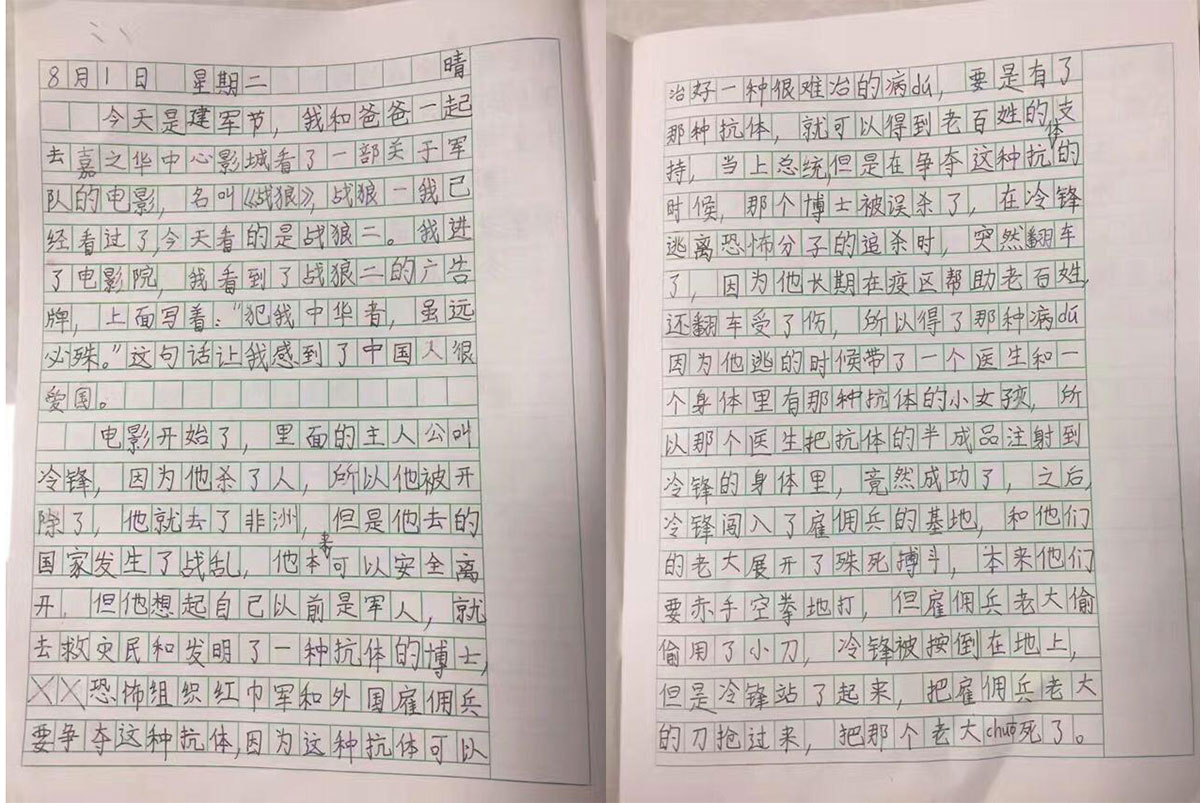 8月1日 星期二 晴
今天是建军节，我和爸爸一起
去嘉之华中心影城看了一部关于军
队的电影，名叫《战狼》，战狼一我已
经看过了今天看的是战狼二。我进
了电影院，我看到了战狼二的广告
牌，上面写着："犯我中华者，虽远
必殊。"这句话让我感到了中国人很
爱国。
电影开始了，里面的主人公叫
冷锋，因为他杀了人，所以他被开
除了，他就去了非洲，但是他去的
国家发生了战乱，他本来可以安全离
开，但他想起自己以前是军人，就
去救灾民和发明了一种抗体的博士，
恐怖组织红巾军和外国雇佣兵
要争夺这种抗体，因为这种抗体可以
治好一种很难治的病dú，要是有了
那种抗体，就可以得到老百姓的支
持，当上总统，但是在争夺这种抗体的
时候，那个博士被误杀了，在冷锋
逃离恐怖分子的追杀时，突然翻车
了，因为他长期在疫区帮助老百姓，
还翻车受了伤，所以得了那种病dú
因为他逃的时候带了一个医生和一
个身体里有那种抗体的小女孩，所
以那个医生把抗体的半成品注射到
冷锋的身体里，竟然成功了，之后，
冷锋闯入了雇佣兵的基地，和他们
的老大展开了殊死搏斗，本来他们
要赤手空拳地打，但雇佣兵老大偷
偷用了小刀，冷锋被按倒在地上，
但是冷锋站了起来，把雇佣兵老大
的刀抢过来，把那个老大chuō死了。